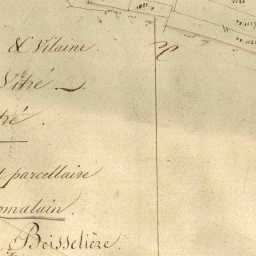 & Vilaine.
Vitré
tré.
t parcellaire
omalain.
Boisselière.